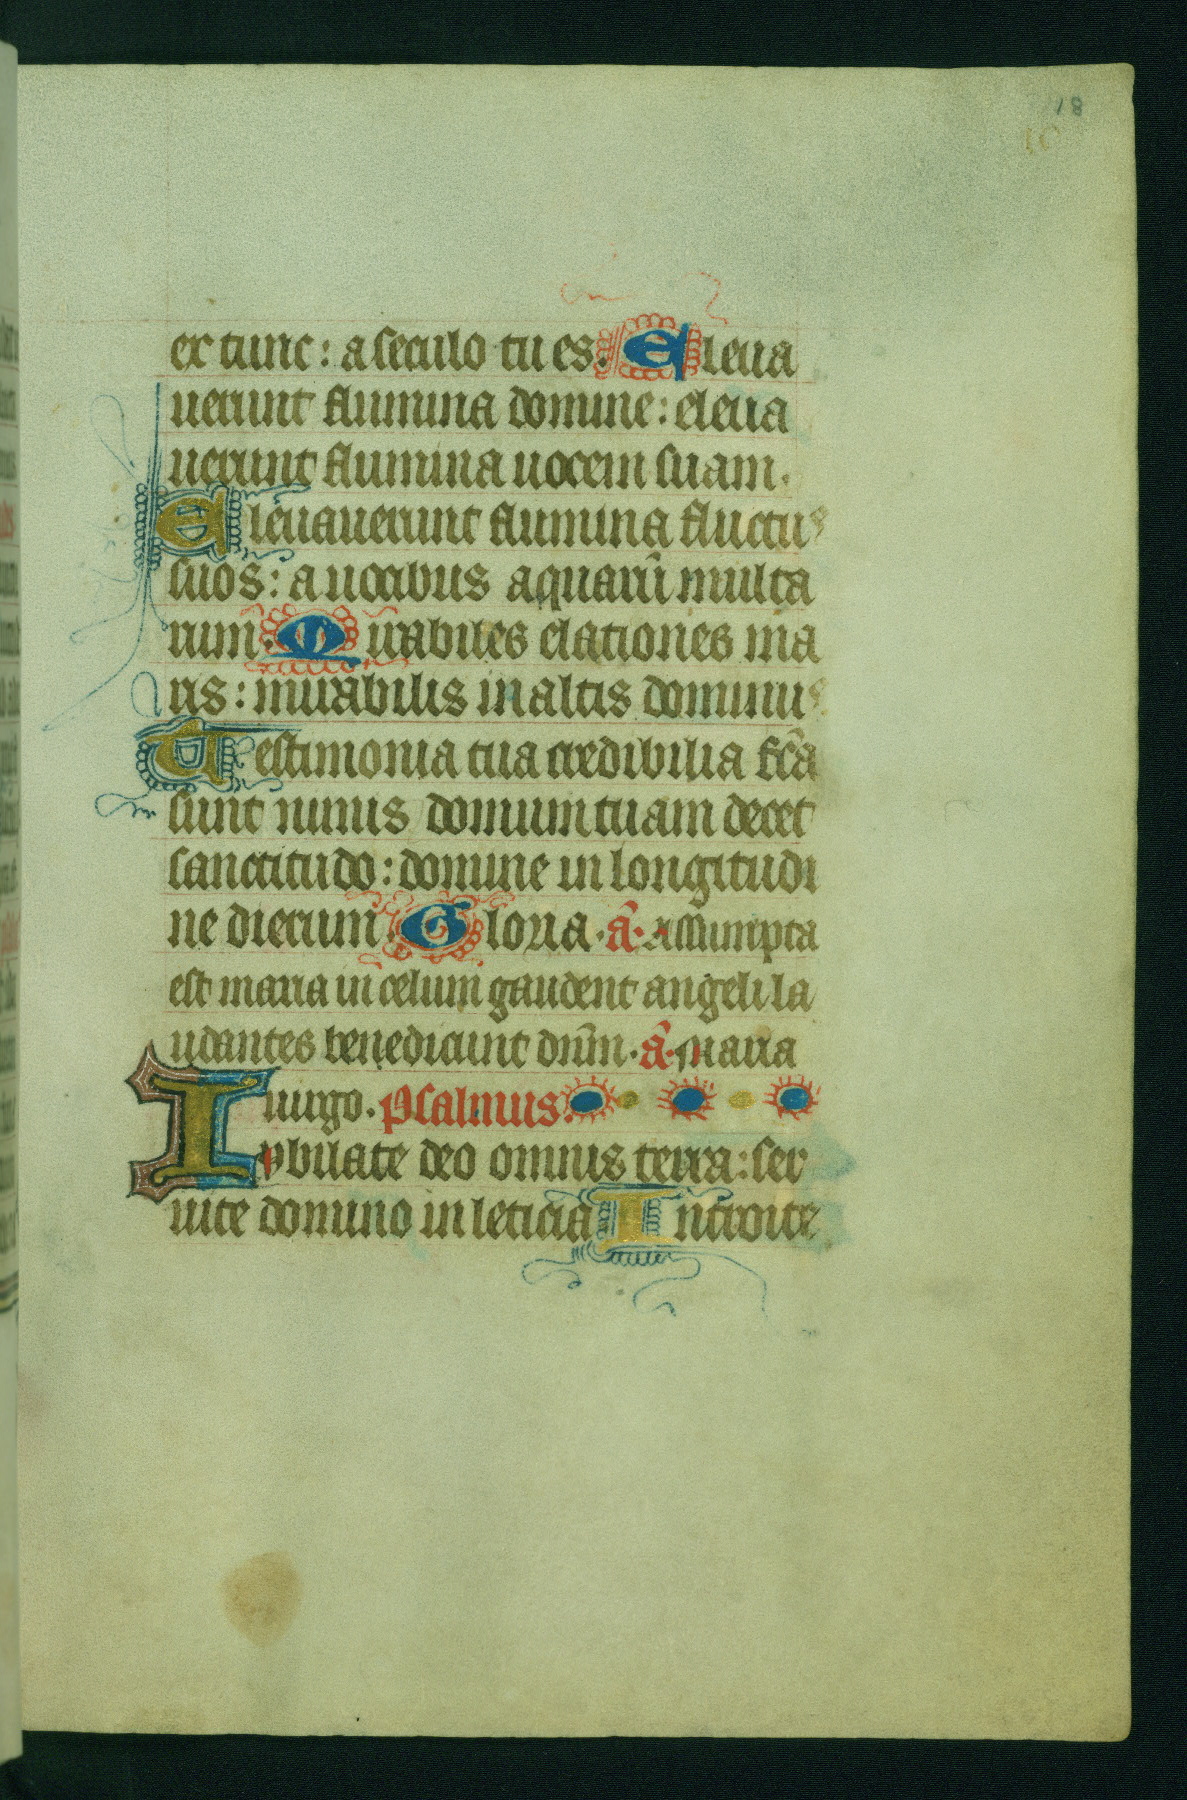 18
10
ex tunc: a seculo tu es. Eleua
uerunt flumina domine: eleua
uerunt flumina uocem suam.
Eleuauerunt flumina fluctus
suos: a uocibus aquarū multa
rum. Mirabiles elationes ma
ris: mirabilis in altis dominus
Testimonia tua credibilia fc̄a
sunt nimis domum tuam decet
sanctitudo: domine in longitudi
ne dierum. Gloria. ā. assumpta
est maria in celum gaudent angeli la
udantes benedicunt dn̄m. ā. maria
uirgo. psalmus.
Iubilate deo omnis terra: ser
uite domino in leticia Introite